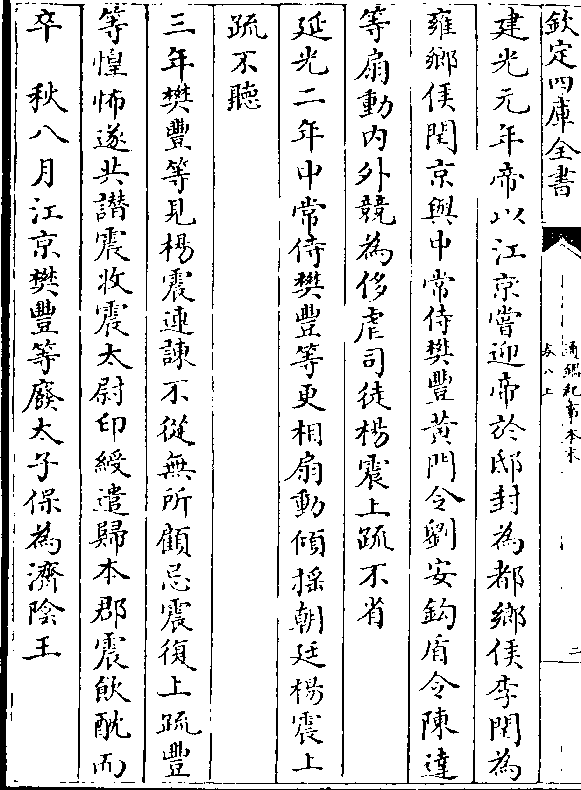 欽定四庫全書
通鑑紀事本末
卷八上
二
建光元年帝以江京嘗迎帝於邸封為都鄉侯李閏為
雍鄉侯閏京與中常侍樊豐黃門令劉安鈎盾令陳達
等扇動內外競為侈虐司徒楊震上疏不省
延光二年中常侍樊豐等更相扇動傾揺朝廷楊震上
疏不聽
三年樊豐等見楊震連諫不從無所顧忌震復上疏豐
等惶怖遂共譖震收震太尉印綬遣歸本郡震飲酖而
卒　秋八月江京樊豐等廢太子保為濟陰王